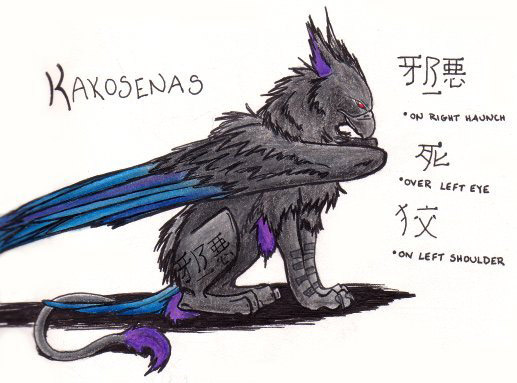 KAKOSENAS
邪悪
•ON RIGHT HAUNCH
死
•OVER LEFT EYE
狡
•ON LEFT SHOULDER
邪悪